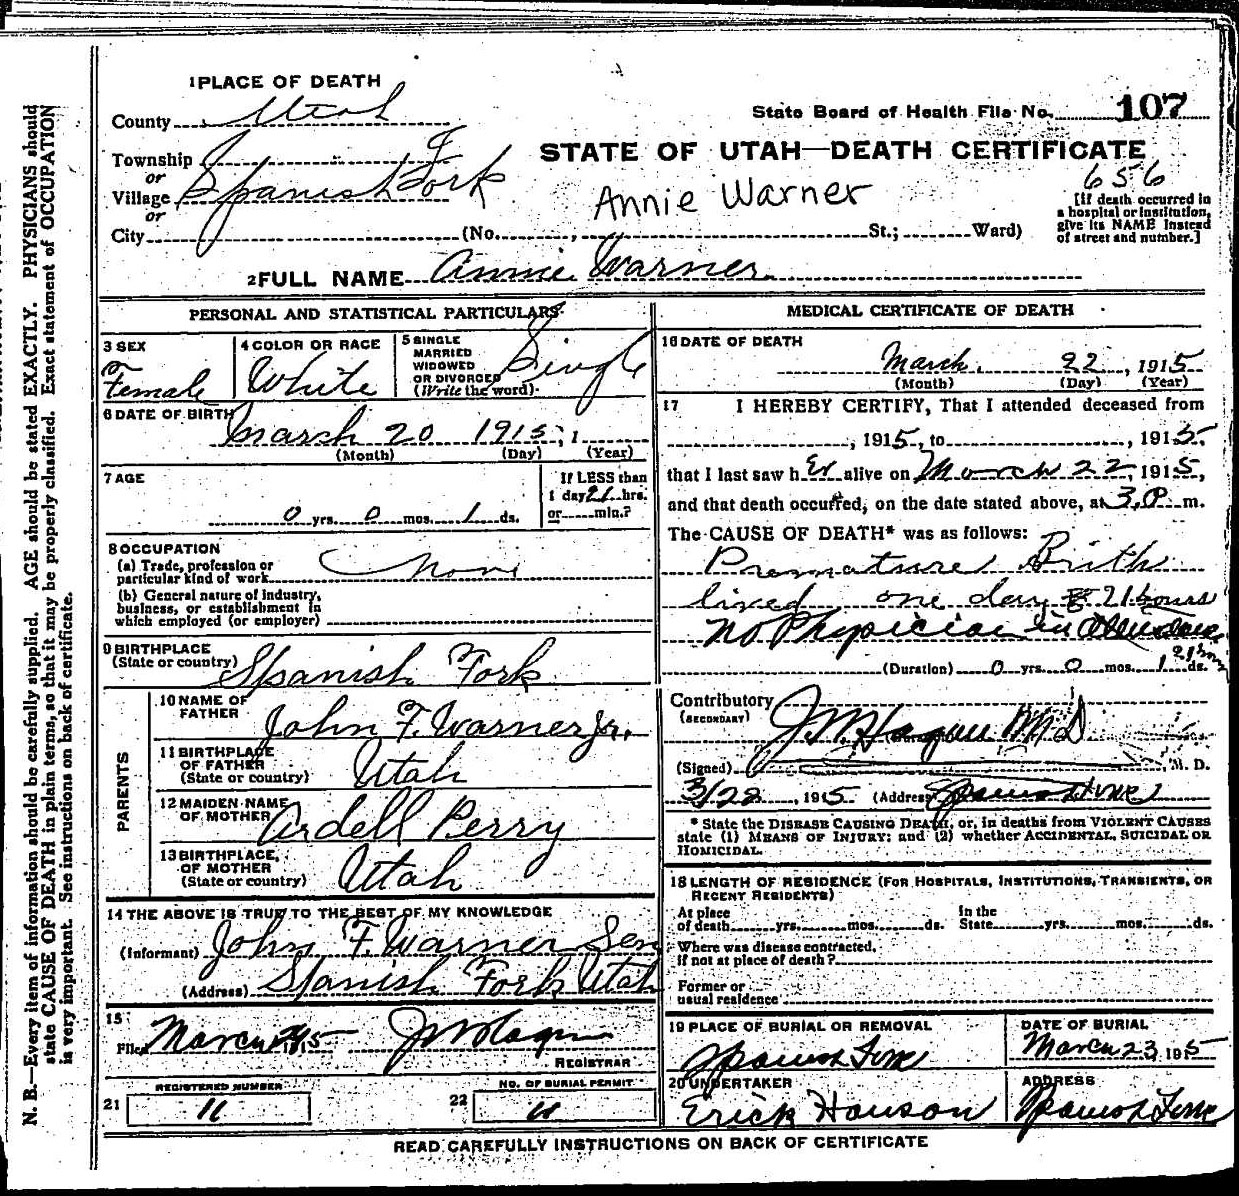 1 PLACE OF DEATH
County Utah
State Board of Health File No. 107
Township
or
Village Spanish Fork
or
City (No. , St.; Ward)
STATE OF UTAH—DEATH CERTIFICATE
656
Annie Warner
[If death occurred in
a hospital or institution,
give its NAME instead
of street and number.]
2 FULL NAME Annie Warner
PERSONAL AND STATISTICAL PARTICULARS
3 SEX
Female
4 COLOR OR RACE
White
5 SINGLE
MARRIED
WIDOWED
OR DIVORCED
(Write the word)
Single
6 DATE OF BIRTH
March 20 1915, 1
(Month) (Day) (Year)
7 AGE
0 yrs. 0 mos. 1 ds.
If LESS than
1 day 21 hrs.
or min.?
8 OCCUPATION
(a) Trade, profession or
particular kind of work None
(b) General nature of industry,
business, or establishment in
which employed (or employer)
9 BIRTHPLACE
(State or country) Spanish Fork
PARENTS
10 NAME OF
FATHER John F. Warner Jr.
11 BIRTHPLACE
OF FATHER
(State or country) Utah
12 MAIDEN NAME
OF MOTHER Ardell Perry
13 BIRTHPLACE
OF MOTHER
(State or country) Utah
14 THE ABOVE IS TRUE TO THE BEST OF MY KNOWLEDGE
(Informant) John F. Warner Sen
(Address) Spanish Fork Utah
15
Filed March 1915
REGISTRAR
REGISTERED NUMBER
21 11
NO. OF BURIAL PERMIT
22 11
MEDICAL CERTIFICATE OF DEATH
16 DATE OF DEATH
March 22, 1915
(Month) (Day) (Year)
17 I HEREBY CERTIFY, That I attended deceased from
, 1915, to , 1915
that I last saw her alive on March 22, 1915,
and that death occurred, on the date stated above, at 3 P m.
The CAUSE OF DEATH* was as follows:
Premature Birth
lived one day & 21 hours
No Physician in Attendance
(Duration) 0 yrs. 0 mos. 1 ds. 21 hrs
Contributory
(SECONDARY)
J. W. Hagan M D
(Signed) M. D.
3/22, 1915 (Address) Spanish Fork
* State the DISEASE CAUSING DEATH, or, in deaths from VIOLENT CAUSES
state (1) MEANS OF INJURY; and (2) whether ACCIDENTAL, SUICIDAL OR
HOMICIDAL.
18 LENGTH OF RESIDENCE (FOR HOSPITALS, INSTITUTIONS, TRANSIENTS, OR
RECENT RESIDENTS)
At place
of death yrs. mos. ds.
In the
State yrs. mos. ds.
Where was disease contracted,
if not at place of death?
Former or
usual residence
19 PLACE OF BURIAL OR REMOVAL
Spanish Fork
DATE OF BURIAL
March 23, 1915
20 UNDERTAKER
Erick Hanson
ADDRESS
Spanish Fork
READ CAREFULLY INSTRUCTIONS ON BACK OF CERTIFICATE
N. B.—Every item of information should be carefully supplied. AGE should be stated EXACTLY. PHYSICIANS should
state CAUSE OF DEATH in plain terms, so that it may be properly classified. Exact statement of OCCUPATION
is very important. See instructions on back of certificate.